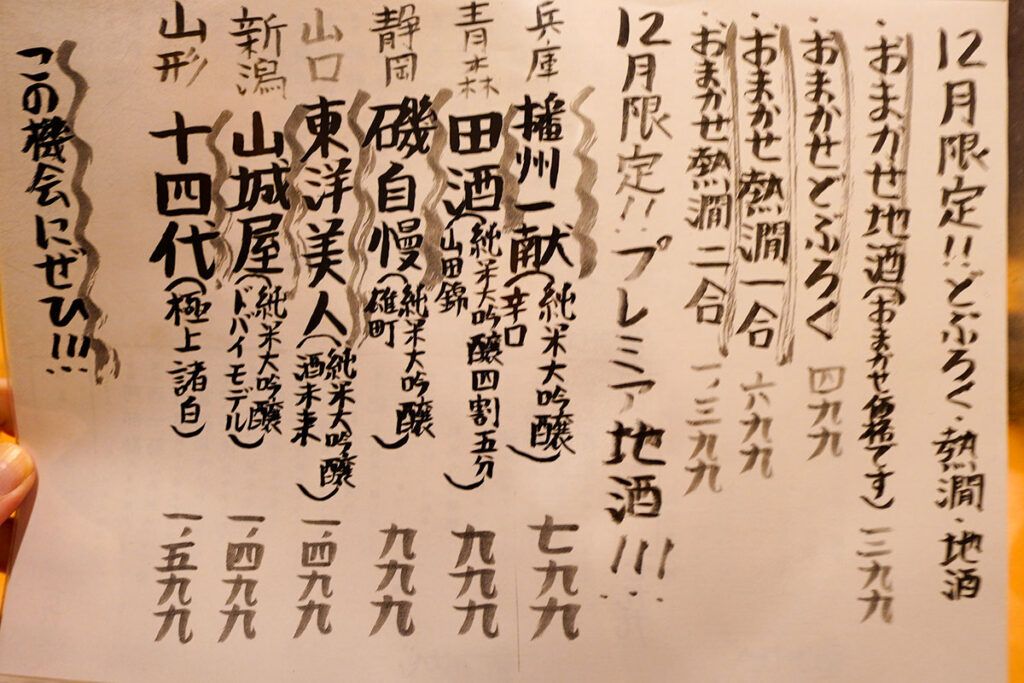 12月限定!!どぶろく・熱澗・地酒
・おまかせ地酒(おまかせ価格です) 三九九
・おまかせどぶろく 四九九
・おまかせ熱澗一合 六九九
・おまかせ熱澗二合 一、三九九
12月限定!!プレミア地酒!!!
兵庫 播州一献(純米大吟醸 辛口) 七九九
青森 田酒(純米大吟醸四割五分 山田錦) 九九九
静岡 磯自慢(純米大吟醸 雄町) 九九九
山口 東洋美人(純米大吟醸 酒未来) 一、四九九
新潟 山城屋(純米大吟醸 ドバイモデル) 一、四九九
山形 十四代(極上諸白) 一、五九九
この機会にぜひ!!!